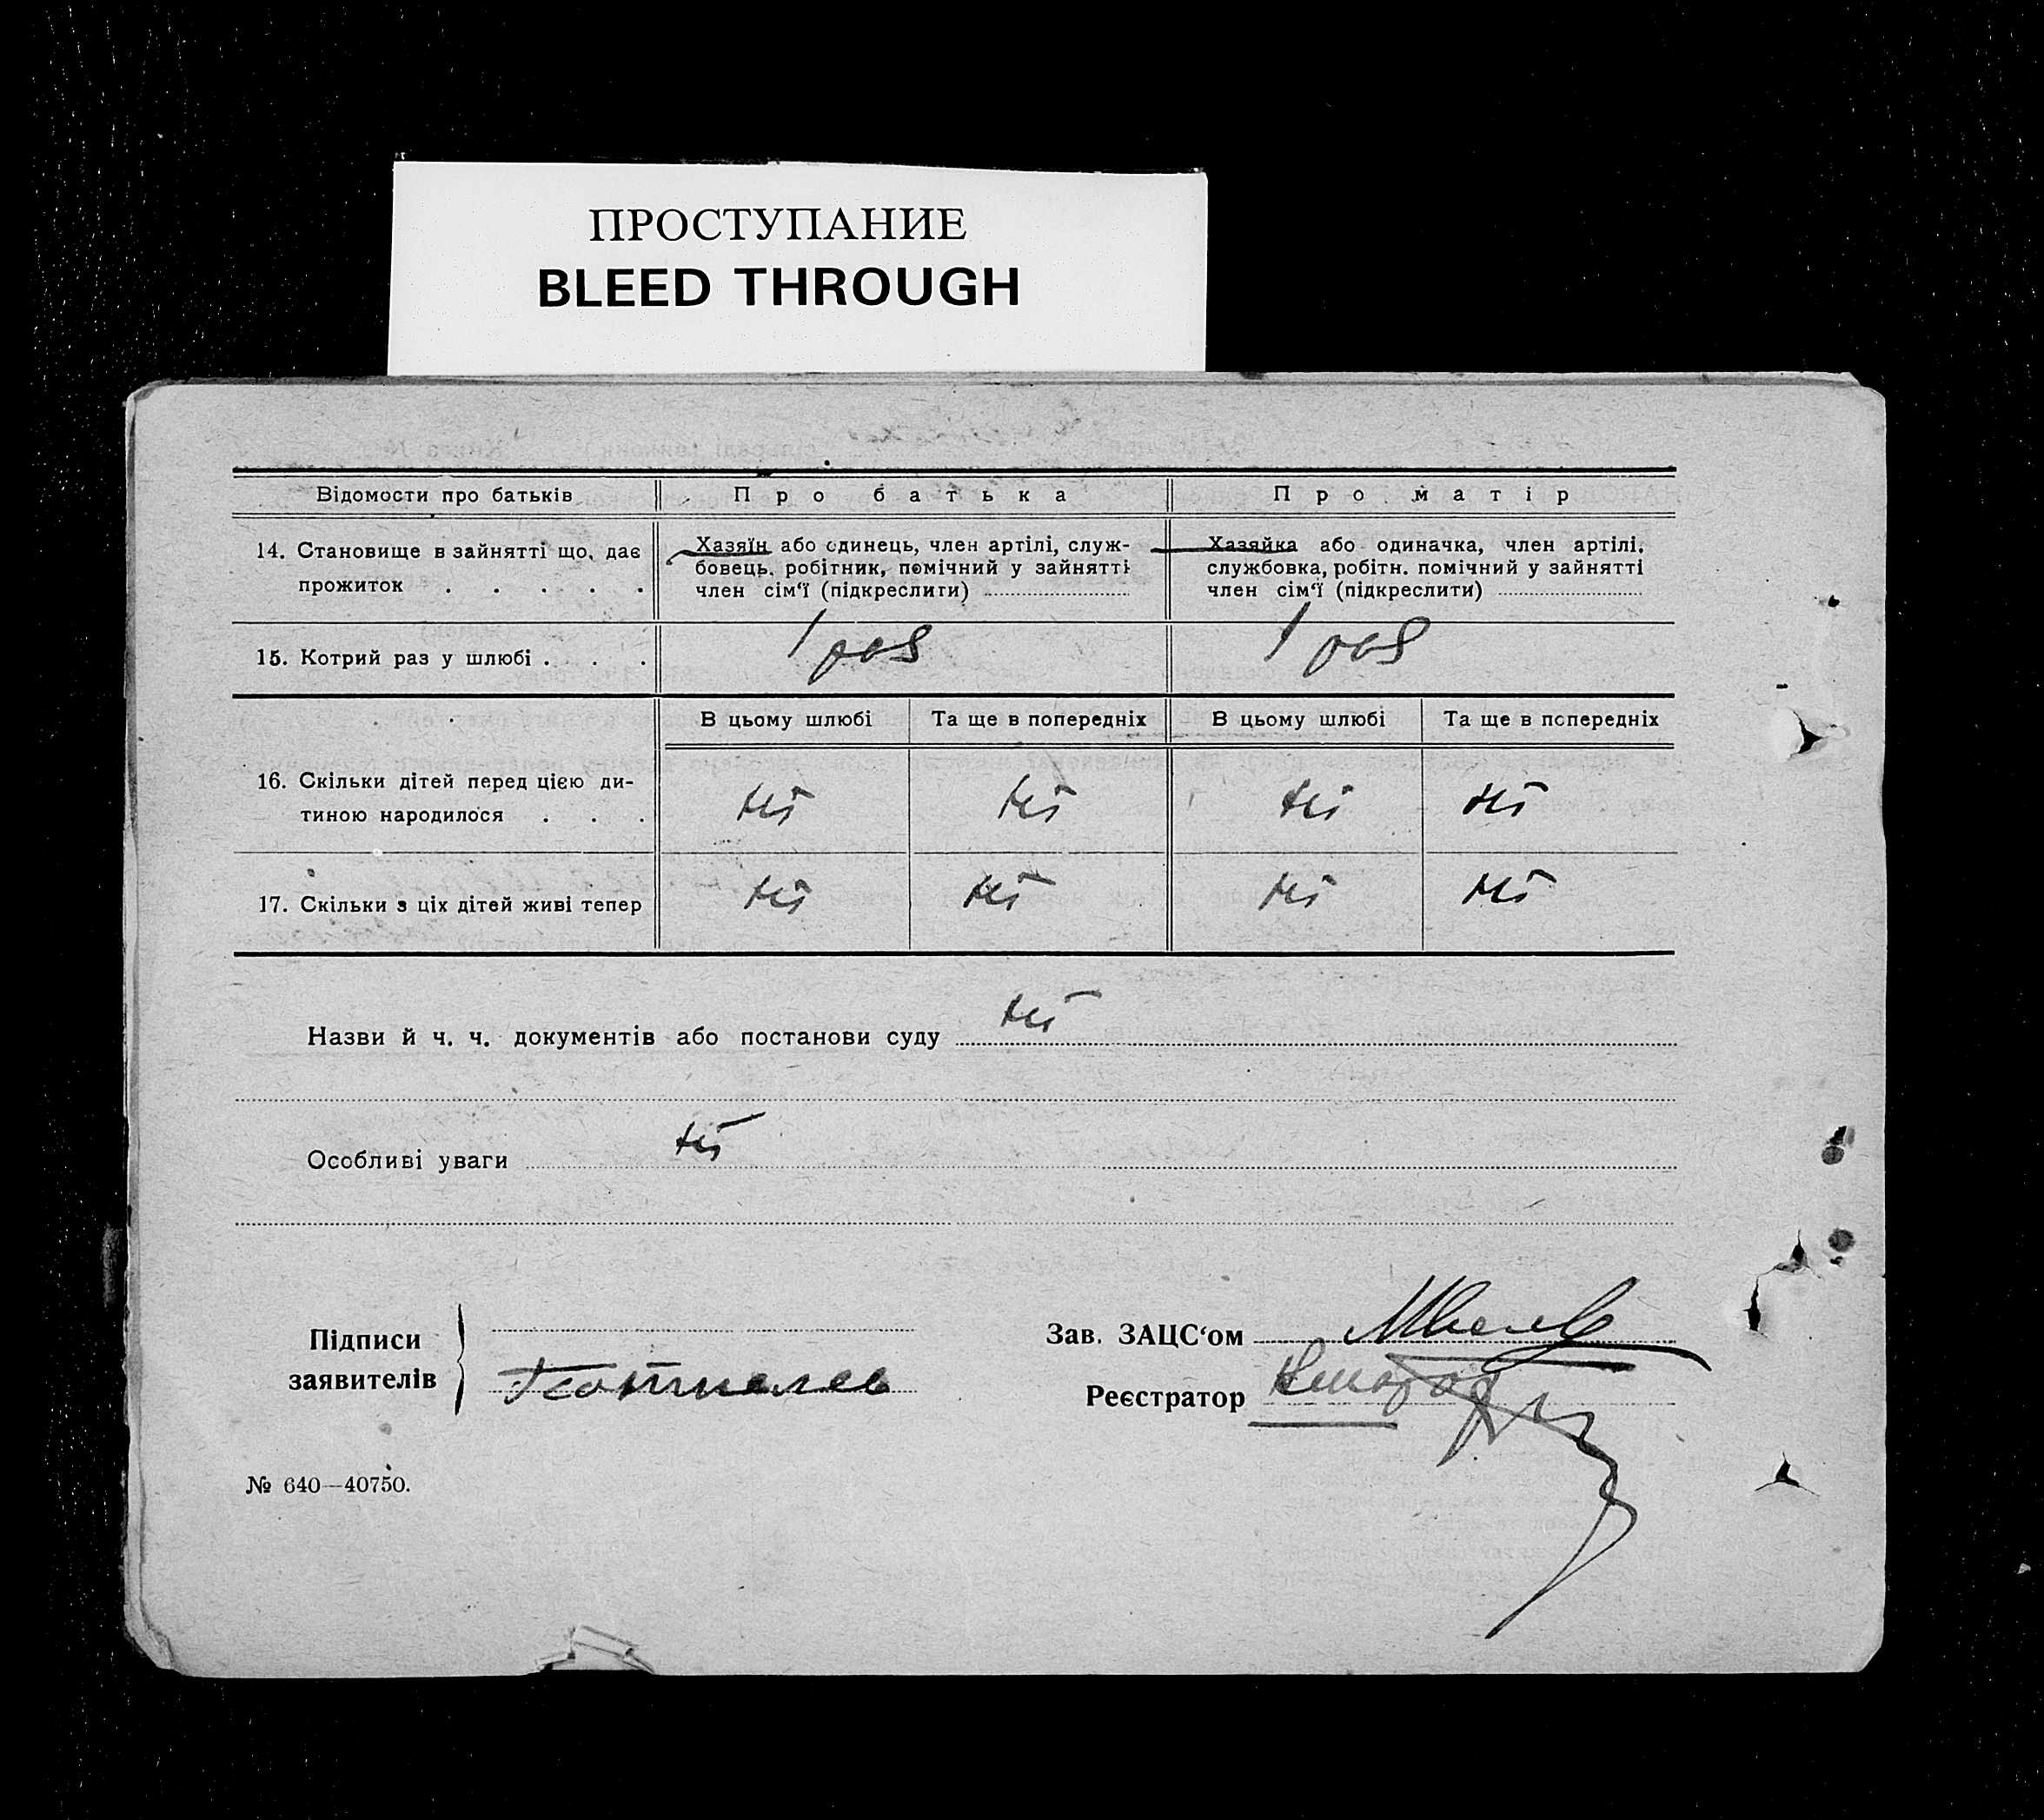 ПРОСТУПАНИЕ
BLEED THROUGH
Відомости про батьків
Про батька
Про матір
14. Становище в зайнятті що, дає
прожиток . . . . .
Хазяїн або одинець, член артілі, служ-
бовець, робітник, помічний у зайнятті
член сім‘ї (підкреслити)
Хазяйка або одиначка, член артілі,
службовка, робітн. помічний у зайнятті
член сім‘ї (підкреслити)
15. Котрий раз у шлюбі . . .
1 раз
1 раз
В цьому шлюбі
Та ще в попередніх
В цьому шлюбі
Та ще в попередніх
16. Скільки дітей перед цією ди-
тиною народилося . . .
ні
ні
ні
ні
17. Скільки з ціх дітей живі тепер
ні
ні
ні
ні
Назви й ч. ч. документів або постанови суду ні
Особливі уваги ні
Підписи
заявителів
Зав. ЗАЦС‘ом
Реєстратор
№ 640—40750.